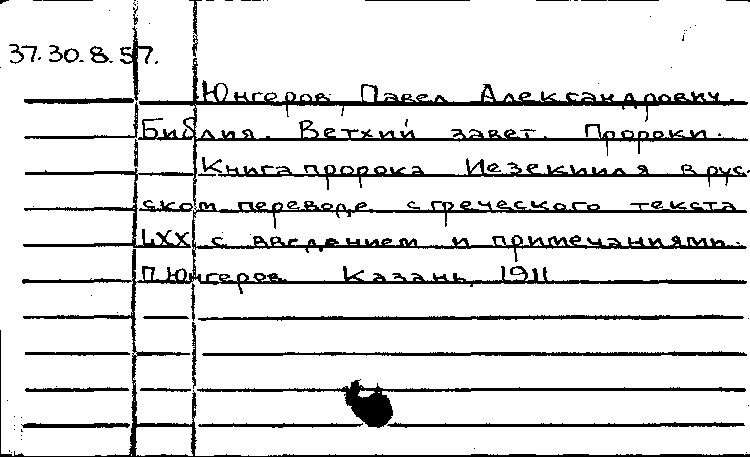 37.30.8.57.
Юнгеров, Павел Александрович.
Библия. Ветхий завет. Пророки.
Книга пророка Иезекииля в рус-
ском переводе с греческого текста
LXX с введением и примечаниями.
П. Юнгеров. Казань, 1911